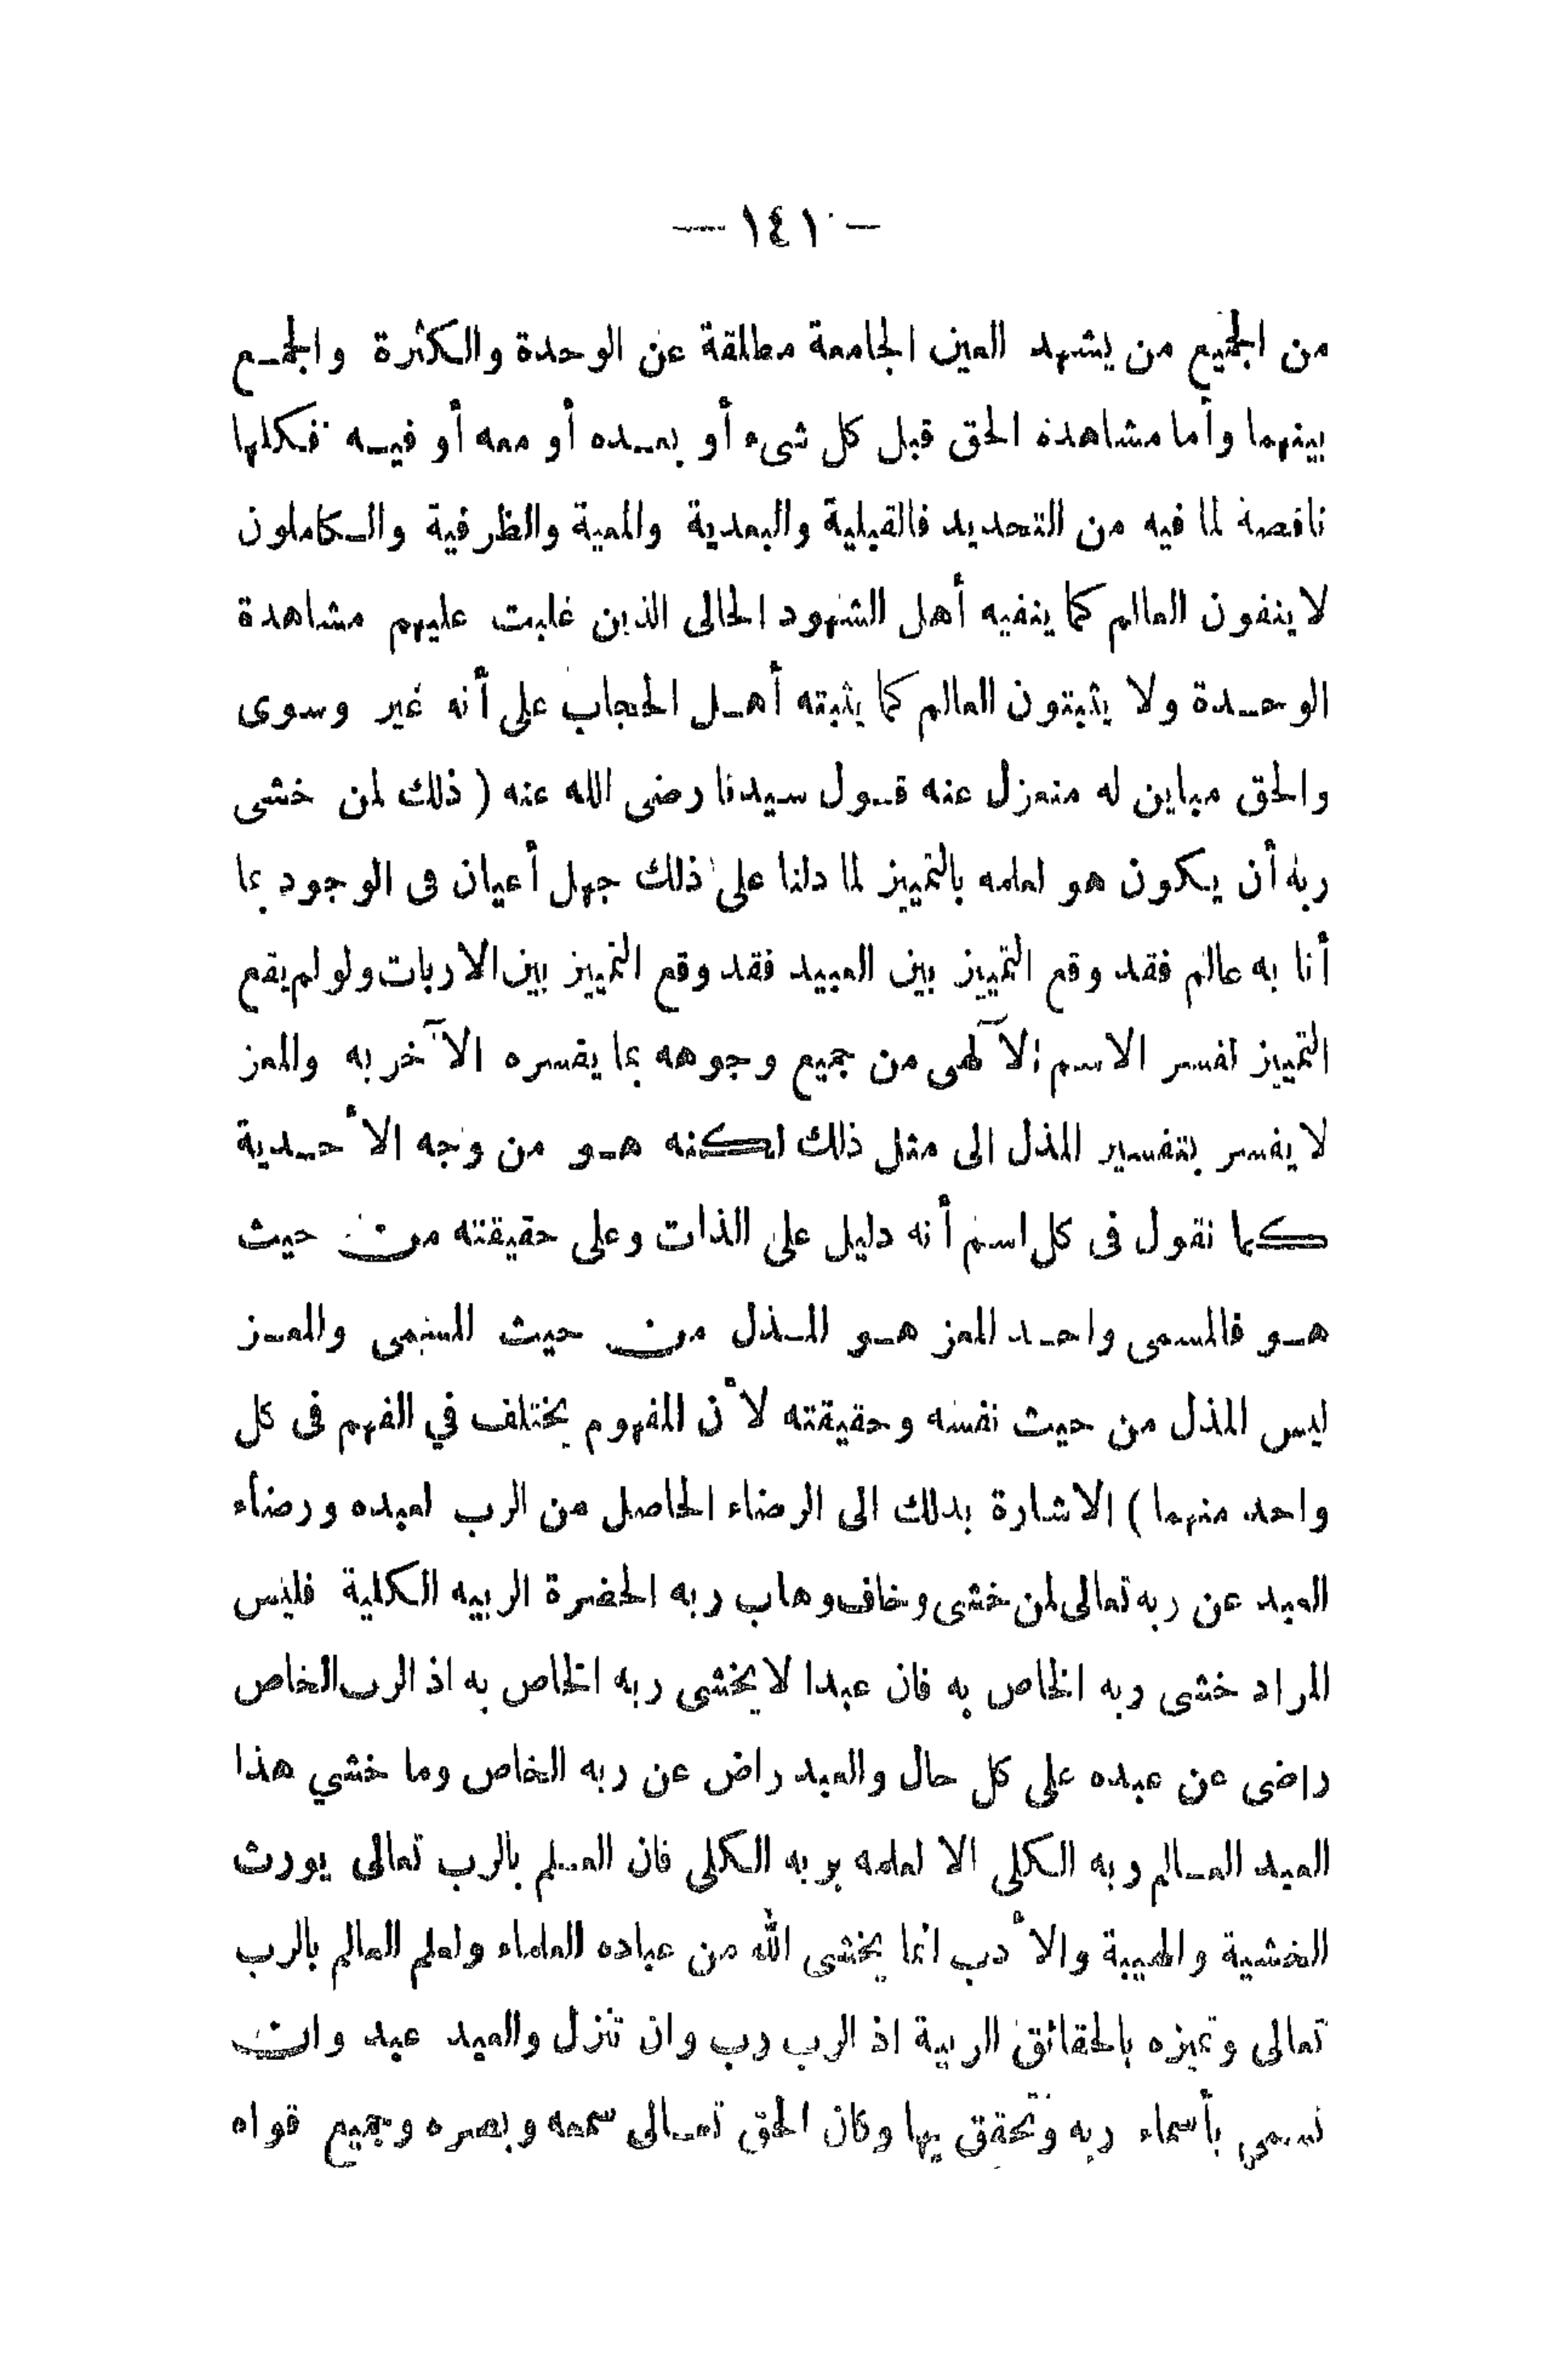 — ١٤١ —
من الجميع من يشهد العين الجامعة مطلقة عن الوحدة والكثرة والجمع
بينهما وأما مشاهدة الحق قبل كل شىء أو بعده أو معه أو فيه فكلها
ناقصة لما فيه من التحديد فالقبلية والبعدية والمعية والظرفية والكاملون
لا ينفون العالم كما ينفيه أهل الشهود الحالى الذين غلبت عليهم مشاهدة
الوحدة ولا يثبتون العالم كما يثبته أهل الحجاب على أنه غير وسوى
والحق مباين له منعزل عنه قول سيدنا رضى الله عنه ( ذلك لمن خشى
ربه أن يكون هو لعلمه بالتمييز لما دلنا على ذلك جهل أعيان فى الوجود بما
أنا به عالم فقد وقع التمييز بين العبيد فقد وقع التمييز بين الارباب ولو لم يقع
التمييز لفسر الاسم الآلهى من جميع وجوهه بما يفسره الآخر به والمعز
لا يفسر بتفسير المذل الى مثل ذلك لكنه هو من وجه الأحدية
كما نقول فى كل اسم أنه دليل على الذات وعلى حقيقته من حيث
هو فالمسمى واحد المعز هو المذل من حيث المسمى والمعز
ليس المذل من حيث نفسه وحقيقته لأن المفهوم يختلف في الفهم فى كل
واحد منهما ) الاشارة بدلك الى الرضاء الحاصل من الرب لعبده ورضاء
العبد عن ربه تعالى لمن خشى وخاف وهاب ربه الحضرة الربيه الكلية فليس
المراد خشى ربه الخاص به فان عبدا لا يخشى ربه الخاص به اذ الرب الخاص
راضى عن عبده على كل حال والعبد راض عن ربه الخاص وما خشي هذا
العبد العالم ربه الكلى الا لعلمه بربه الكلى فان العلم بالرب تعالى يورث
الخشية والهيبة والأدب انما يخشى الله من عباده العلماء ولعلم العالم بالرب
تعالى وتميزه بالحقائق الربية اذ الرب رب وان تنزل والعبد عبد وان
تسمى بأسماء ربه وتحقق بها وكان الحق تعالى سمعه وبصره وجميع قواه